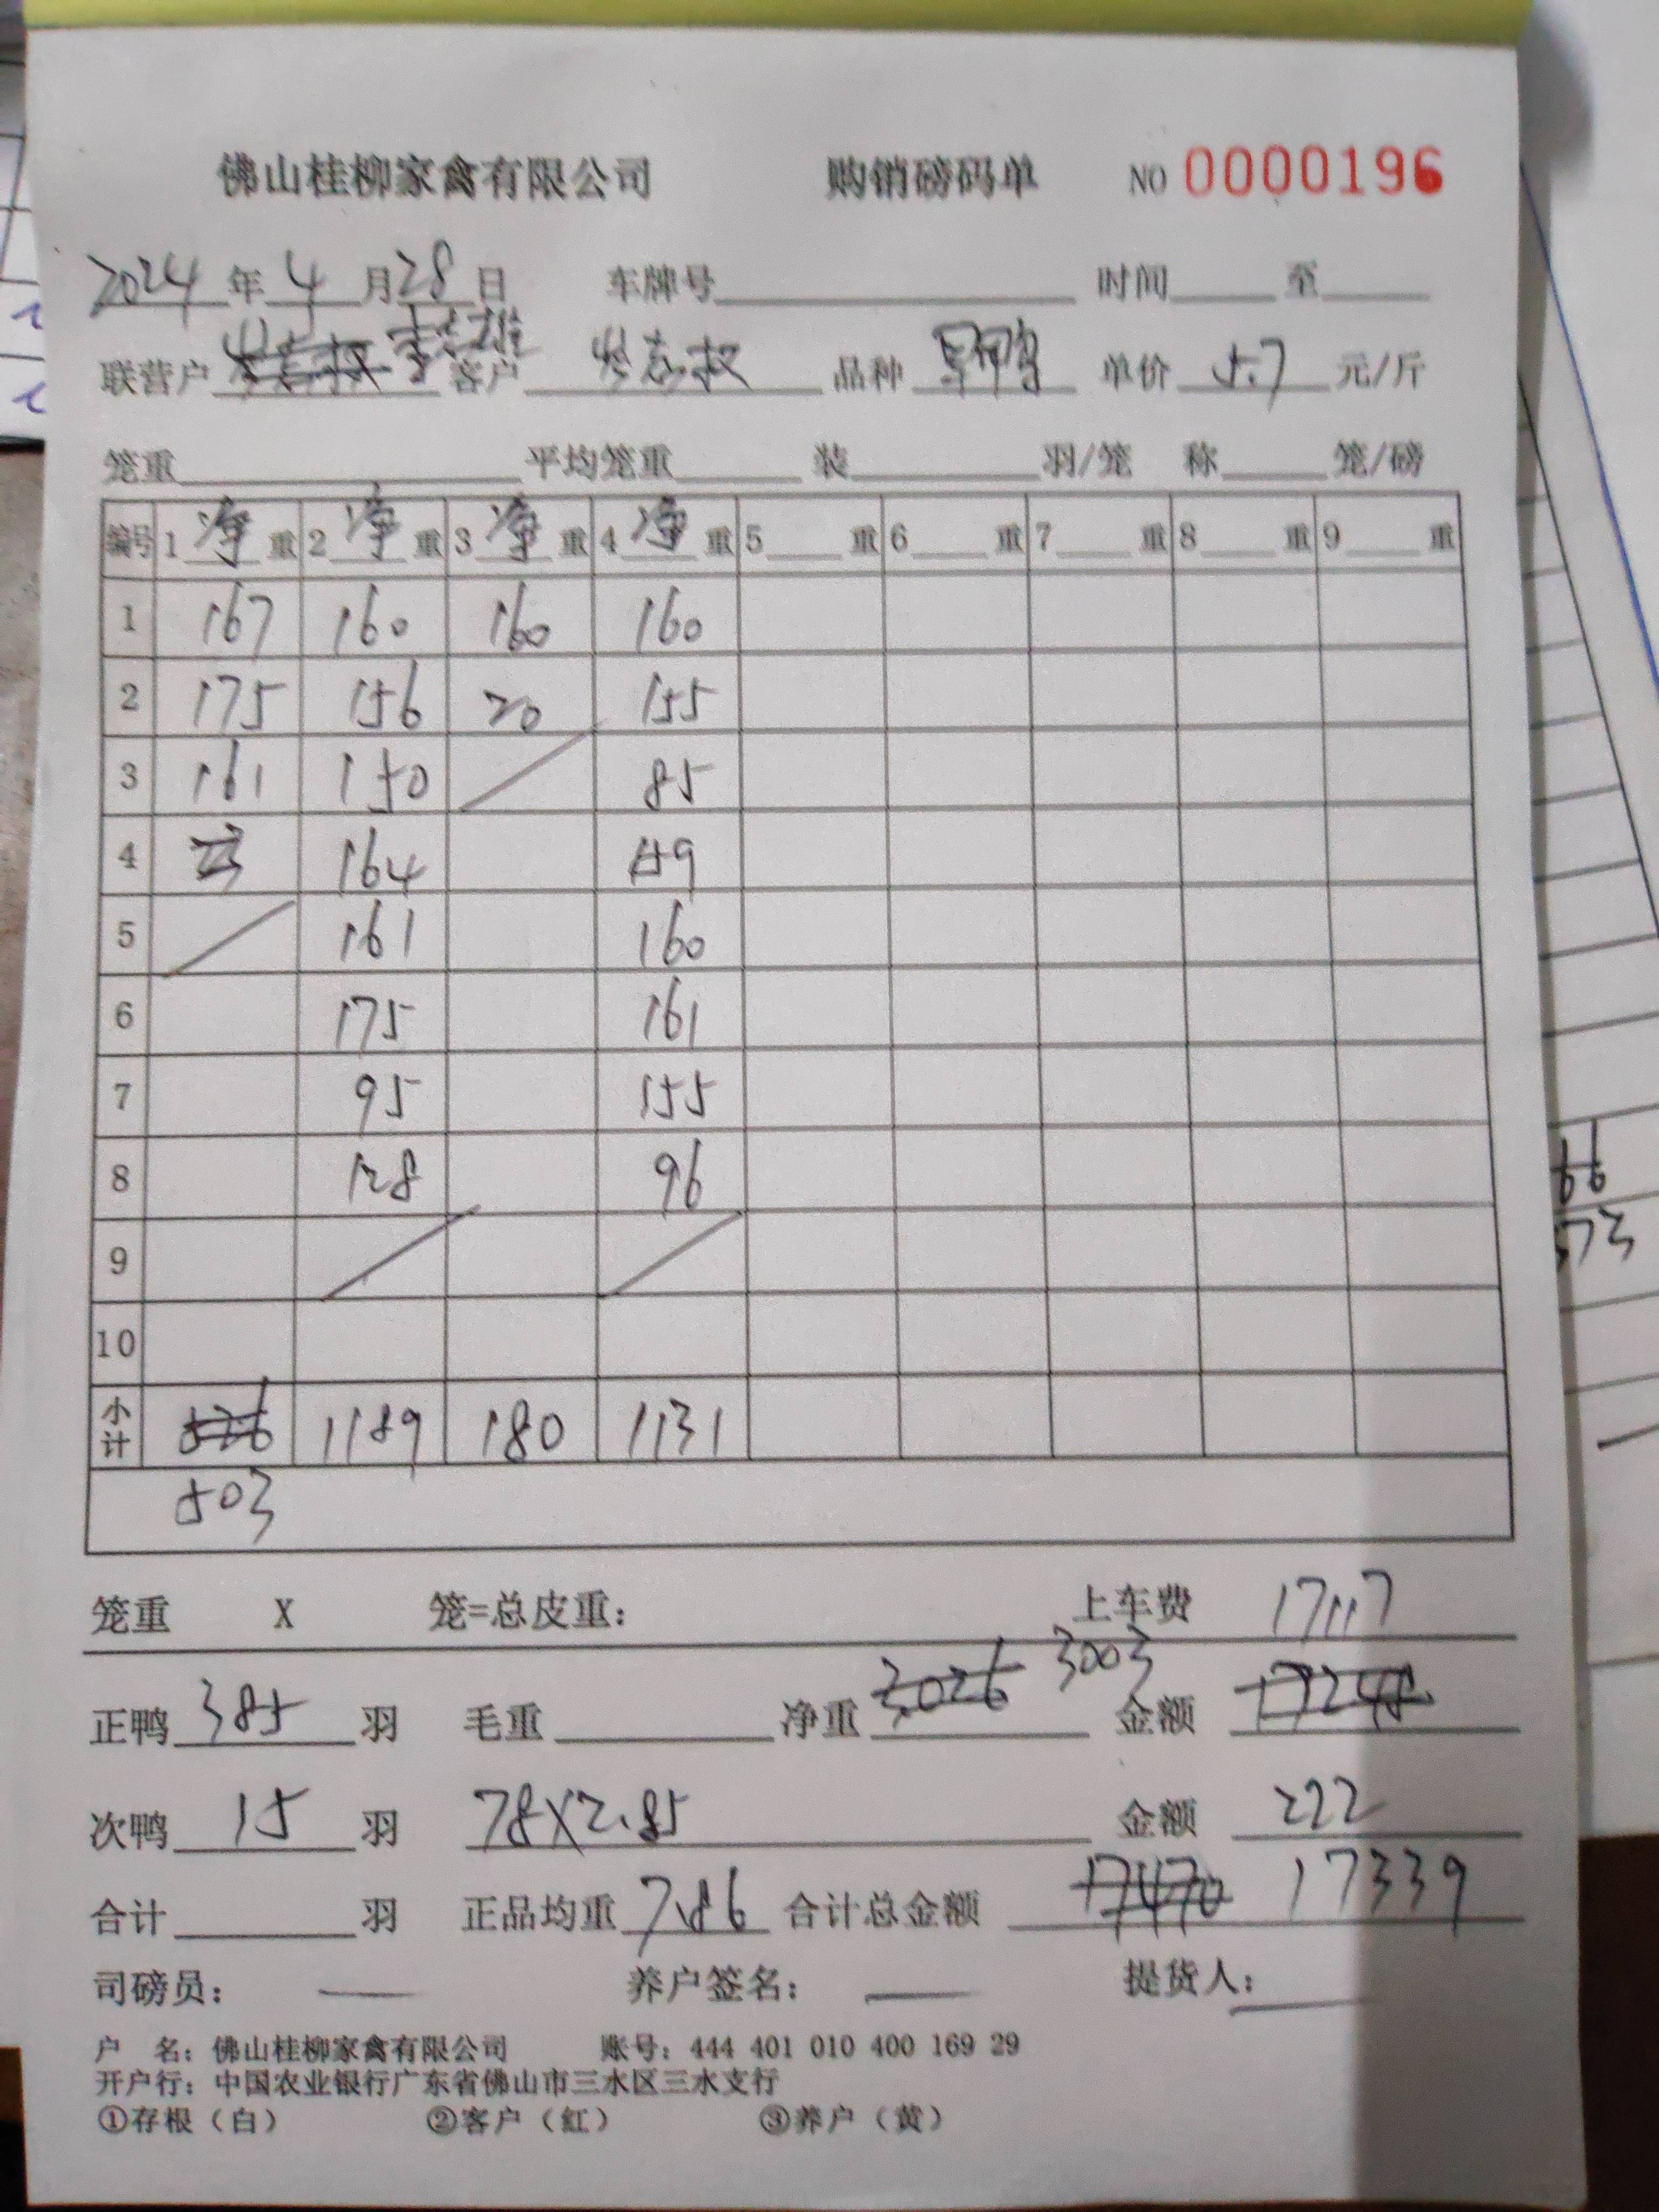 佛山桂柳家禽有限公司 购销磅码单 NO 0000196
2024年4月28日 车牌号 时间 至
联营户 客户 志权 品种 单价 5.7 元/斤
笼重 平均笼重 装 羽/笼 称 笼/磅
编号 1 净 重 2 净 重 3 净 重 4 净 重 5 重 6 重 7 重 8 重 9 重
1 167 160 160 160
2 175 156 20 155
3 161 150 85
4 164 159
5 161 160
6 175 161
7 95 155
8 128 96
9
10
小计 526 1189 180 1131
503
笼重 X 笼=总皮重: 上车费 17117
正鸭 385 羽 毛重 净重 3026 3003 金额 17248
次鸭 15 羽 78X2.85 金额 222
合计 羽 正品均重 7.86 合计总金额 17470 17339
司磅员: 养户签名: 提货人:
户 名: 佛山桂柳家禽有限公司 账号: 444 401 010 400 169 29
开户行: 中国农业银行广东省佛山市三水区三水支行
①存根（白） ②客户（红） ③养户（黄）
66
573